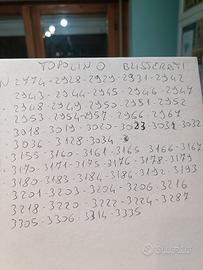 TOPOLINO BLISTERATI
N 2774-2928-2929-2931-2942
2943-2944-2945-2946-2947
2948-2949-2950-2951-2952
2953-2954-2957-2966-2967
3018-3019-3020-3023-3031-3032
3036-3128-3034
3155-3160-3161-3165-3166-3167
3170-3171-3175-3176-3178-3179
3180-3183-3184-3186-3192-3193
3201-3203-3204-3206-3216
3218-3220-3222-3224-3287
3305-3306-3314-3335
subito